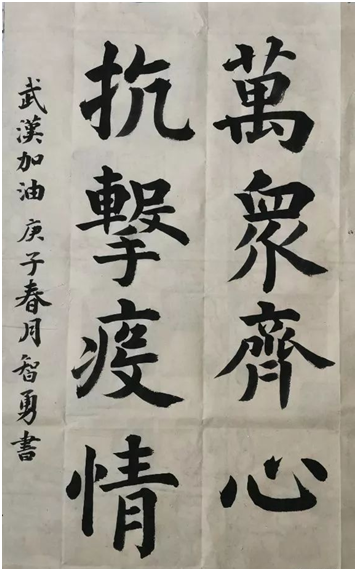 萬眾齊心
抗擊疫情
武漢加油 庚子春月智勇書